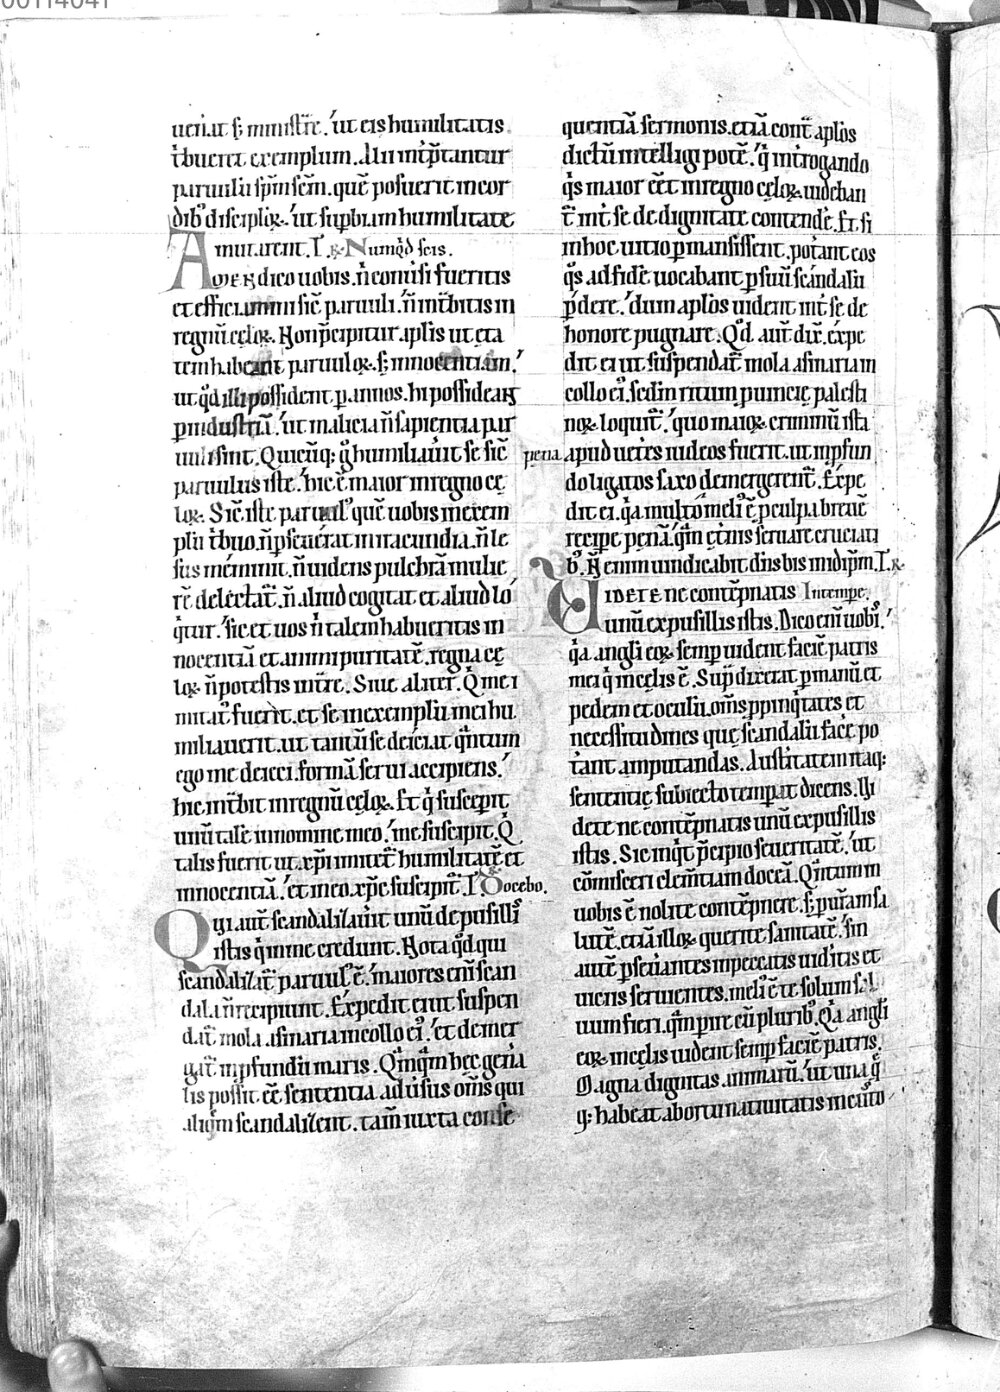 uerat s; ministrare. ut eis humilitatis
t'bueret exemplum. Alii int'p̄tantur
paruulū sp̄m sc̄m. quē posuerit in cor
dib; discipl'oꝝ. ut sup̄biam humilitate
mutarent. I. ꝶ Nuḿqd scis.
Amen dico uobis. ń conu'si fueritis
et efficiamini sic̄ paruuli. ń int'bitis in
regnū cęloꝝ. Non p̄cipitur ap'lis ut eta
tem habeant paruuloꝝ. s; innocentiam.
ut qd illi possident p annos. hi possideant
p industriā. ut malicia ń sapientia par
uuli sint. Quicūq; g̊ humiliauit se sic̄
paruulus iste. hic ē maior in regno cę
loꝝ. Sic̄ iste paruul' quē uobis in exem
plū t'buo. ń p̄seuerat in iracundia. ń le
sus meminit. ń uidens pulchrā mulie
rē delectat̄. ń aliud cogitat et aliud lo
q̇tur. sic et uos ń talem habueritis in
nocentiā et animi puritatē. regna cę
loꝝ ń potestis int̄re. Siue aliter. Q̇ me i
mitat' fuerit. et se in exemplū mei hu
miliauerit. ut tantū se deiciat q̄ntum
ego me deieci. formā serui accipiens.
hic int'bit in regnū cęloꝝ. Et q̇ suscep̄it
unū talē in nomine meo. me suscipit. Q̇
talis fuerit ut xp̄i imitet' humilitatē et
innocentiā. et in eo xp̄c suscipit'. I. ꝶ Docebo.
Qui aut̄ scandalizauit unū de pusill'
istis q̇ in me credunt. Nota qd qui
scandalizat' paruul' ē. maiores enī scan
dala ń recipiunt. Expedit ei ut suspen
dat' mola asinaria in collo ei'. et demer
gat' in p̄fundū maris. Q̄mq̄m hęc genera
lis possit ēē sententia. aduersus om̄s qui
aliq̄m scandalizent. tam̄ iuxta conse
quentiā sermonis. etiā cont̄ ap'los
dictū intelligi potē. q̇ int'rogando
q̇s maior ēēt in regno cęloꝝ. uideban
t' int' se de dignitate contendē. Et si
in hoc uitio p̄mansissent. pot'ant eos
q̇s ad fidē uocabant p suū scandalū
p̄dere. dum ap'los uident int' se de
honore pugnare. Qd aut̄ dix̄. expe
dit ei ut suspendat' mola asinaria in
collo ei'. sedm ritum puincię palesti
noꝝ loquit'. quo maioꝝ criminū ista
pena apud ueteres iudeos fuerit. ut in p̄fun
do ligatos saxo demergerent'. Expe
dit ei. q̇a multo meli' ē p culpa breuē
recipe penā. q̄m et'nis seruare cruciati
b; N enim uindicabit dn̄s bis in idip̄m. I. ꝶ
Videte ne contep̄natis Intempe.
unū ex pusillis istis. Dico enī uob'.
q̇a angli eoꝝ semp uident faciē patris
mei q̇ in cęlis ē. Sup' dixerat p manū et
pedem et oculū. om̄s p̄pinq̇tates et
necessitudines quę scandalū facē po
t'ant amputandas. Austitatem itaq;
sententię subiecto temp̄at dicens. Ui
dete ne contep̄natis unū ex pusillis
istis. Sic inq̇t p̄cipio seueritatē. ut
cōmisceri clem̄tiam doceā. Q̄ntum in
uobis ē nolite contep̄nere. s; p ur̄am sa
lutē. etiā illoꝝ querite sanitatē. Sin
autē p̄seuerantes in peccatis uiditis et
uiciis seruientes. meli' ē te solum sal
uum fieri. q̄m pire cū plurib;. Q̇a angli
eoꝝ in cęlis uident semp faciē patris.
Magna dignitas animarū. ut una q̇
q; habeat ab ortu natiuitatis in custo